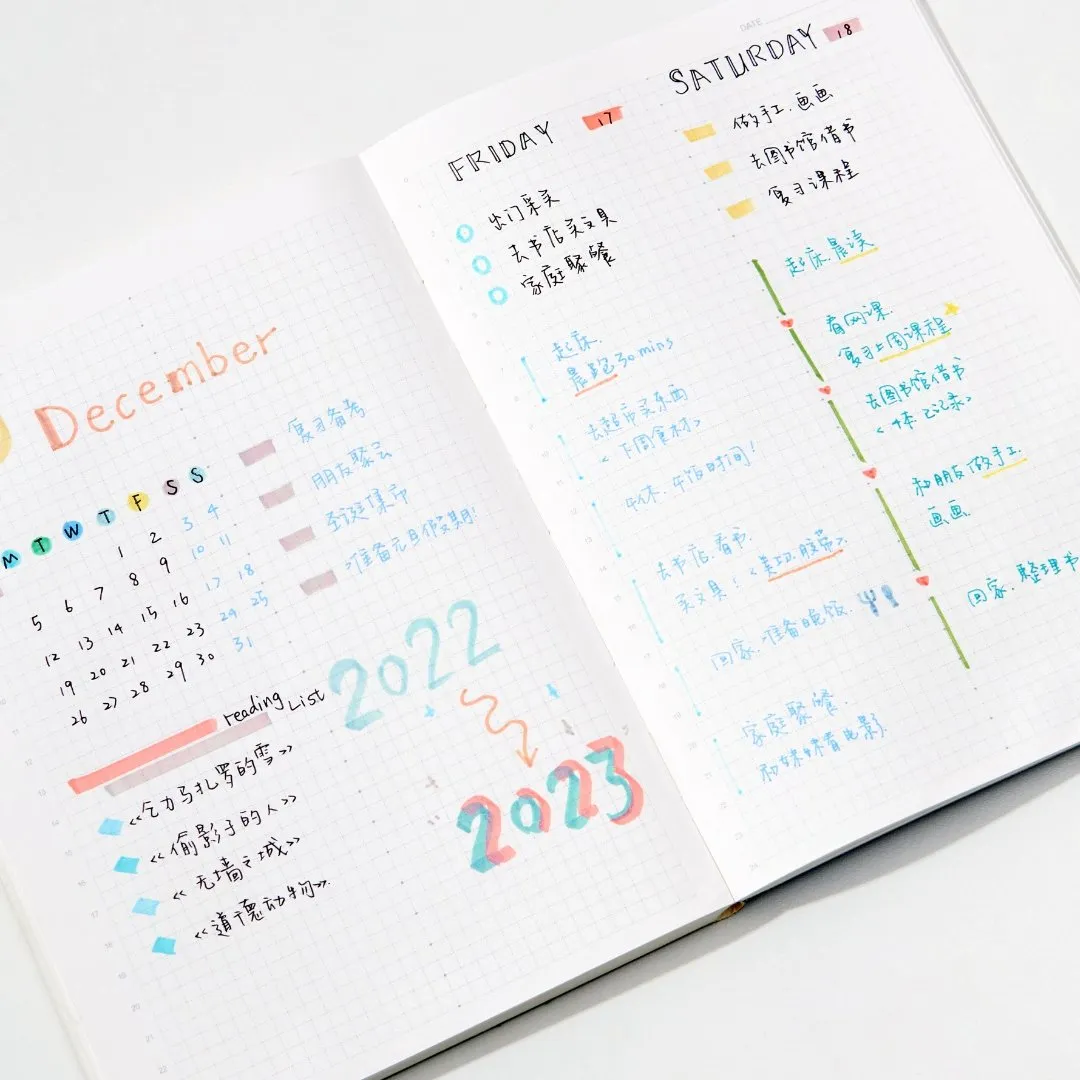 December
复习备考
朋友聚会
圣诞集市
准备元旦假期!
M T W T F S S
1 2 3 4
5 6 7 8 9 10 11
12 13 14 15 16 17 18
19 20 21 22 23 29 25
26 27 28 29 30 31
reading List
《乞力马扎罗的雪》
《偷影子的人》
《无墙之城》
《道德动物》
2022
2023
FRIDAY 17
出门采买
去书店买文具
家庭聚餐
起床.
晨跑30mins
去超市买东西
<下周食材>
午休.午饭时间!
去书店看书.
买文具!<美纹胶带>.
回家.准备晚饭.
家庭聚餐.
和妹妹看电影
DATE
SATURDAY 18
做手工.画画
去图书馆借书
复习课程
起床.晨读
看网课.
复习上周课程
去图书馆借书
<4本记录>
和朋友做手工
画画.
回家.整理书